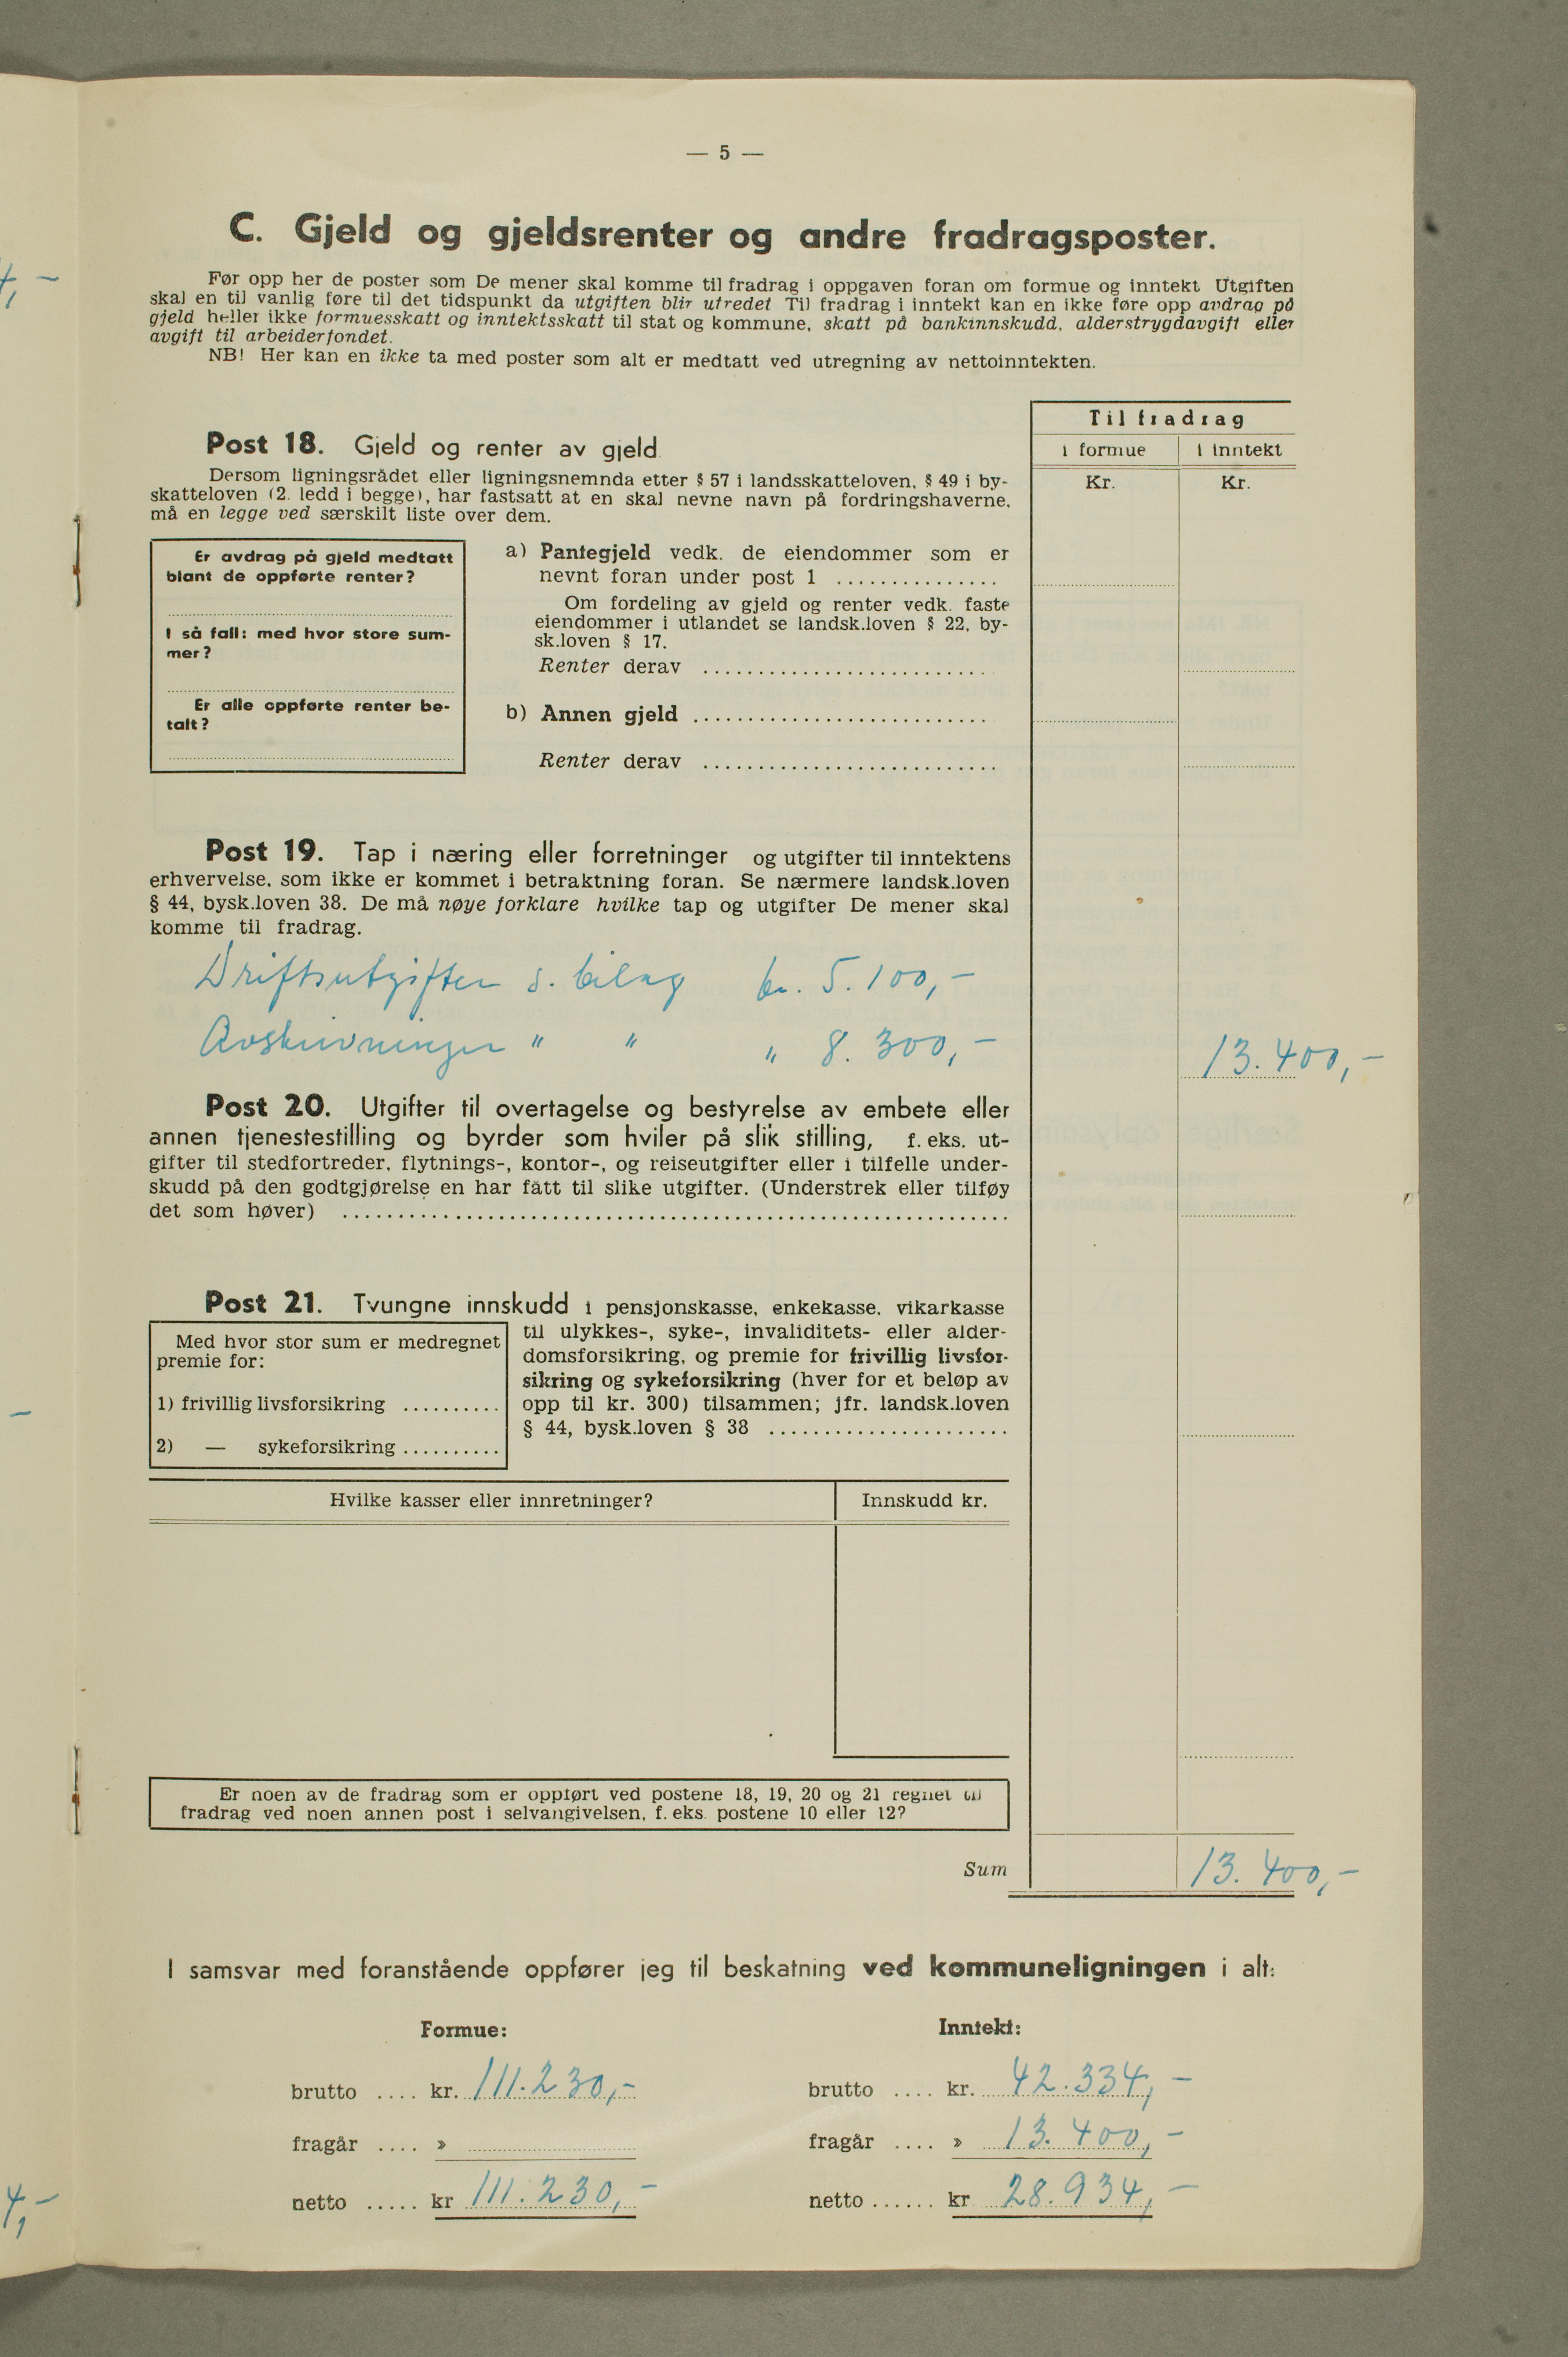 — 5 —
C. Gjeld og gjeldsrenter og andre fradragsposter.
Før opp her de poster som De mener skal komme til fradrag i oppgaven foran om formue og inntekt Utgiften
skal en til vanlig føre til det tidspunkt da utgiften blir utredet Til fradrag i inntekt kan en ikke føre opp avdrag på
gjeld heller ikke formuesskatt og inntektsskatt til stat og kommune, skatt på bankinnskudd, alderstrygdavgift eller
avgift til arbeiderfondet.
NB! Her kan en ikke ta med poster som alt er medtatt ved utregning av nettoinntekten.
Til fradrag
i formue i inntekt
Kr. Kr.
Post 18. Gjeld og renter av gjeld.
Dersom ligningsrådet eller ligningsnemnda etter § 57 i landsskatteloven, § 49 i by-
skatteloven (2. ledd i begge), har fastsatt at en skal nevne navn på fordringshaverne,
må en legge ved særskilt liste over dem.
Er avdrag på gjeld medtatt
blant de oppførte renter?
I så fall: med hvor store sum-
mer?
Er alle oppførte renter be-
talt?
a) Pantegjeld vedk. de eiendommer som er
nevnt foran under post 1 ...............
Om fordeling av gjeld og renter vedk. faste
eiendommer i utlandet se landsk.loven § 22, by-
sk.loven § 17.
Renter derav ..........................
b) Annen gjeld ...........................
Renter derav ...........................
Post 19. Tap i næring eller forretninger og utgifter til inntektens
erhvervelse, som ikke er kommet i betraktning foran. Se nærmere landsk.loven
§ 44, bysk.loven 38. De må nøye forklare hvilke tap og utgifter De mener skal
komme til fradrag.
Driftsutgifter s. bilag kr. 5.100,-
Avskrivninger " " " 8.300,- 13.400,-
Post 20. Utgifter til overtagelse og bestyrelse av embete eller
annen tjenestestilling og byrder som hviler på slik stilling, f. eks. ut-
gifter til stedfortreder, flytnings-, kontor-, og reiseutgifter eller i tilfelle under-
skudd på den godtgjørelse en har fått til slike utgifter. (Understrek eller tilføy
det som høver) ............................................................
Post 21. Tvungne innskudd i pensjonskasse, enkekasse, vikarkasse
til ulykkes-, syke-, invaliditets- eller alder-
domsforsikring, og premie for frivillig livsfor-
sikring og sykeforsikring (hver for et beløp av
opp til kr. 300) tilsammen; jfr. landsk.loven
§ 44, bysk.loven § 38 ......................
Med hvor stor sum er medregnet
premie for:
1) frivillig livsforsikring ..........
2) — sykeforsikring ..........
Hvilke kasser eller innretninger? Innskudd kr.
Er noen av de fradrag som er oppført ved postene 18, 19, 20 og 21 regnet til
fradrag ved noen annen post i selvangivelsen, f. eks. postene 10 eller 12?
Sum 13.400,-
I samsvar med foranstående oppfører jeg til beskatning ved kommuneligningen i alt:
Formue: Inntekt:
brutto .... kr. 111.230,- brutto .... kr. 42.334,-
fragår .... » fragår .... » 13.400,-
netto ..... kr 111.230,- netto ...... kr 28.934,-